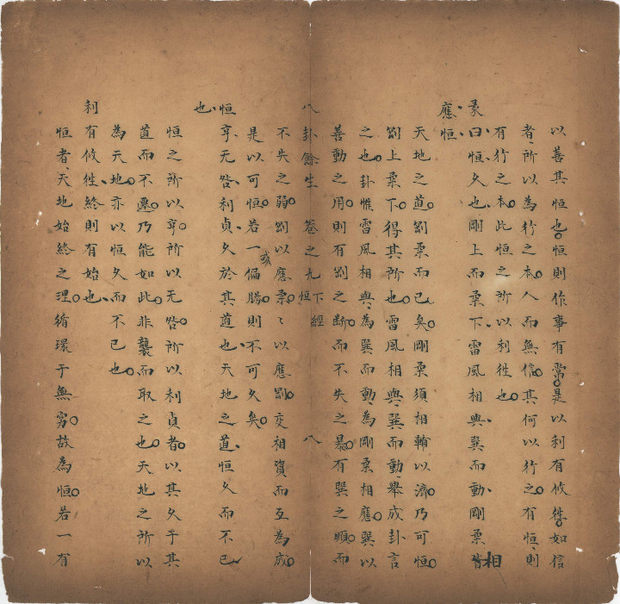 以善其恒也恒則作事有常是以利有攸往如信
者所以為行之本人而無信其何以行之有恒則
有行之本此恒之所以利往也
彖曰恒久也剛上而柔下雷風相與巽而動剛柔皆相
應恒
天地之道剛柔而已矣剛柔須相輔以濟乃可恒
剛上柔下得其所也雷風相與巽而動舉成卦言
之也卦惟雷風相與為巽而動為剛柔相應巽以
善動之用則有剛之斷而不失之暴有巽之順而
八卦餘生 卷之九 下經 恒 八
不失之弱剛以應柔〻以應剛交相資而互為成
是以可恒若一或偏勝則不可久矣
恒亨无咎利貞久於其道也天地之道恒久而不已
也
恒之所以亨所以无咎所以利貞者以其久于其
道而不遷乃能如此非襲而取之也天地之所以
為天地亦以恒久而不已也
利有攸往終則有始也
恒者天地始終之理循環于無窮故為恒若一有